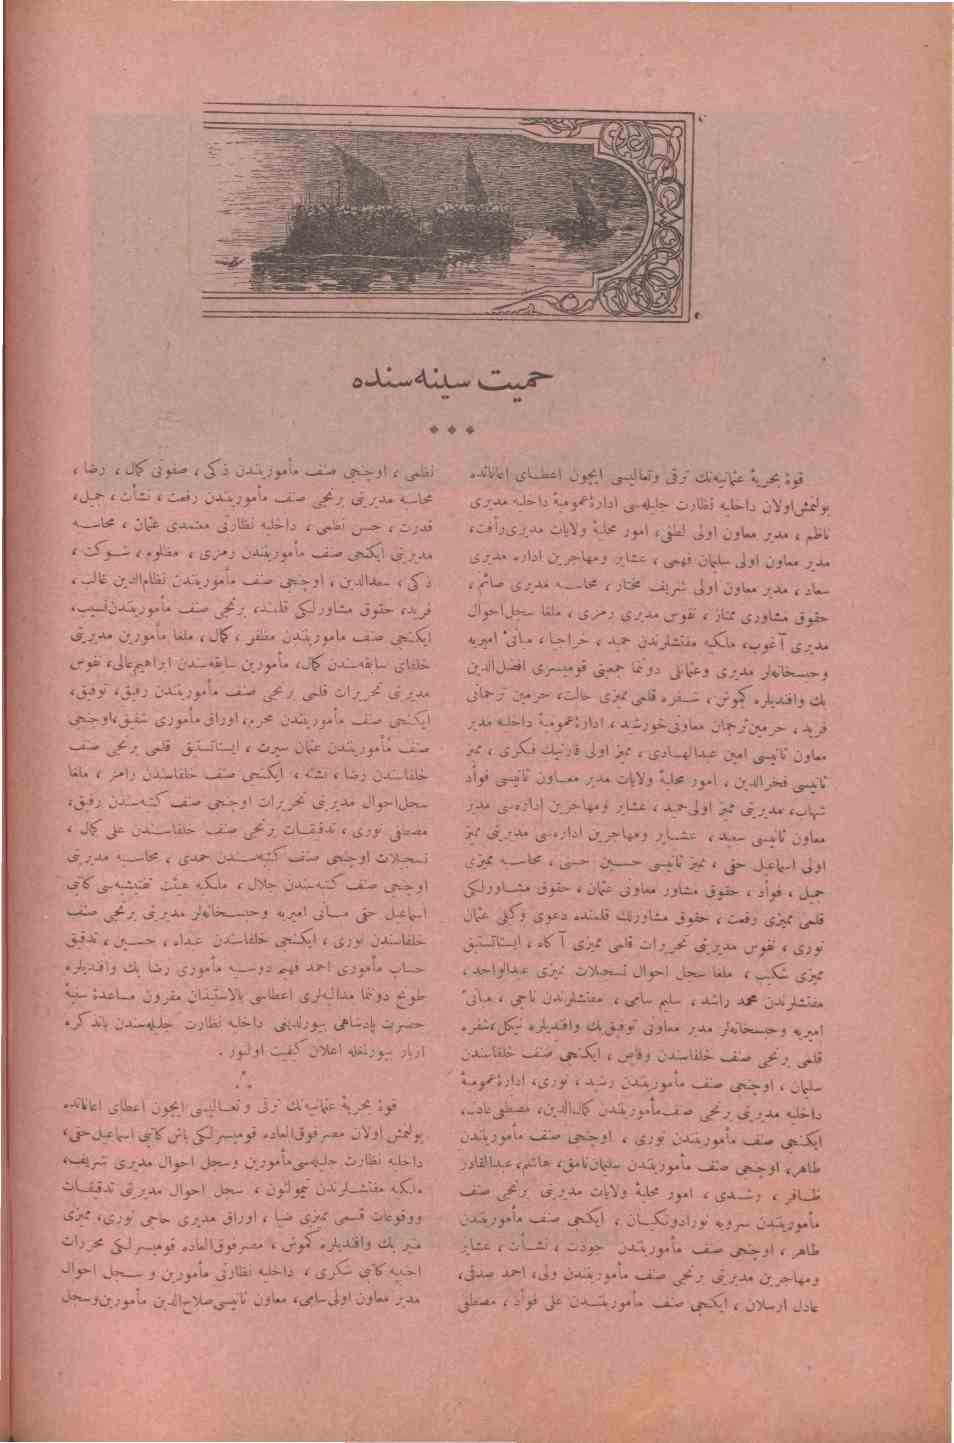 حمیت سینه‌سنده
قوۀ بحریۀ عثمانیه‌نك ترقی وتعالیسی ایچون اعطای اعاناتده
بولنمش اولان داخلیه نظارت جلیله‌سی ادارۀ عمومیۀ داخلیه مدیری
ناظم ، مدیر معاون اولی لطفی، امور محلیۀ ولایات مدیری رأفت،
مدیر معاون اولی سلیمان فهمی ، عشایر ومهاجرین اداره مدیری
سعاد ، مدیر معاون اولی شریف مختار ، محاسبه مدیری صائم ،
حقوق مشاوری ممتاز ، نفوس مدیری رمزی ، ملغا سجل احوال
مدیری آغوب، ملکیه مفتشلرندن حمید ، خراجیا ، مبانیٔ امیریه
وحبسخانه‌لر مدیری وعثمانلی دوننما جمعیتی قومیسری افضل‌الدین
بك وافندیلره کموش ، شفره قلمی ممیزی حالت، حرمین ترجمانی
فرید ، حرمین ترجمان معاونی خورشد ، ادارۀ عمومیۀ داخلیه مدیر
معاون ثانیسی امین عبدالهادی ، ممیز اولی قارنیك فکری ، ممیز
ثانیسی فخرالدین ، امور محلیۀ ولایات مدیر معاون ثانیسی فوأد
شهاب، مدیریتی ممیز اولی حمید ، عشایر ومهاجرین اداره‌سی مدیر
معاون ثانیسی سعید ، عشایر ومهاجرین اداره‌سی مدیریتی ممیز
اولی اسماعیل حقی ، ممیز ثانیسی حسین حسنی ، محاسبه ممیزی
جمیل ، فوأد ، حقوق مشاور معاونی عثمان ، حقوق مشاورلکی
قلمی ممیزی رفعت ، حقوق مشاورلك قلمنده دعوی وکیلی عثمان
نوری ، نفوس مدیریتی تحریرات قلمی ممیزی آکاه ، ایستاتستیق
ممیزی شکیب ، ملغا سجل احوال تسجیلات ممیزی عبدالواحد،
مفتشلرندن محمد راشد ، سلیم سامی ، مفتشلرندن ناجی ، مبانیٔ
امیریه وحبسخانه‌لر مدیر معاونی توفیق بك وافندیلره نیکل، شفره
قلمی برنجی صنف خلفاسندن وفاس ، ایکنجی صنف خلفاسندن
سلیمان ، اوچنجی صنف مأمورینندن رشید ، نوری، ادارۀ عمومیۀ
داخلیه مدیریتی برنجی صنف مأمورینندن کمال‌الدین، مصطفی عادت،
ایکنجی صنف مأمورینندن نوری ، اوچنجی صنف مأمورینندن
طاهر ، اوچنجی صنف مأمورینندن سلیمان نامق، هاشم، عبدالقادر
ظافر ، رشدی ، امور محلیۀ ولایات مدیریتی برنجی صنف
مأمورینندن سرویه نورادونکیان ، ایکنجی صنف مأمورینندن
طاهر ، اوچنجی صنف مأمورینندن جودت ، نشأت ، عشایر
ومهاجرین مدیریتی برنجی صنف مأمورینندن ولی، احمد صدقی،
عادل ارسلان ، ایکنجی صنف مأمورینندن علی فوأد ، مصطفی
نظمی ، اوچنجی صنف مأمورینندن ذکی ، صفوتی کمال ، رضا ،
محاسبه مدیریتی برنجی صنف مأمورینندن رفعت ، نشأت ، جمیل،
قدرت ، حسن نظمی ، داخلیه نظارتی معتمدی عثمان ، محاسبه
مدیریتی ایکنجی صنف مأمورینندن رمزی ، مظلوم ، شوکت ،
ذکی ، سعدالدین ، اوچنجی صنف مأمورینندن نظام‌الدین غالب ،
فرید، حقوق مشاورلکی قلمنده برنجی صنف مأمورینندن نسیب،
ایکنجی صنف مأمورینندن مظفر ، کمال ، ملغا مأمورین مدیریتی
خلفای سابقه‌سندن کمال، مأمورین سابقه‌سندن ابراهیم عالی، نفوس
مدیریتی تحریرات قلمی برنجی صنف مأمورینندن رفیق، توفیق،
ایکنجی صنف مأمورینندن محرم، اوراق مأموری شفیق، اوچنجی
صنف مأمورینندن عثمان سیرت ، ایستاتستیق قلمی برنجی صنف
خلفاسندن رضا ، نشئه ، ایکنجی صنف خلفاسندن رامز ، ملغا
سجل احوال مدیریتی تحریرات اوچنجی صنف کتبه‌سندن رفیق،
مصطفی نوری ، تدقیقات برنجی صنف خلفاسندن علی کمال ،
تسجیلات اوچنجی صنف کتبه‌سندن حمدی ، محاسبه مدیریتی
اوچنجی صنف کتبه‌سندن جلال ، ملکیه هیئت تفتیشیه‌سی کاتبی
اسماعیل حقی مبانی امیریه وحبسخانه‌لر مدیریتی برنجی صنف
خلفاسندن نوری ، ایکنجی خلفاسندن عبداه ، حسین ، تدقیق
حساب مأموری احمد فهیم دوسیه مأموری رضا بك وافندیلره
طونج دوننما مدالیه‌لری اعطاسی بالاستیذان مقرون مساعدۀ سنیۀ
حضرت پادشاهی بیورلدیغی داخلیه نظارت جلیله‌سندن باتذکره
ازبار بیورلمغله اعلان کیفیت اولنور .
قوۀ بحریۀ عثمانیه‌نك ترقی وتعالیسی ایچون اعطای اعاناتده
بولنمش اولان مصر فوق‌العاده قومیسرلکی باش کاتبی اسماعیل حقی،
داخلیه نظارت جلیله‌سی مأمورین وسجل احوال مدیری شریف،
ملکیه مفتشلرندن تیمولئون ، سجل احوال مدیریتی تدقیقات
ووقوعات قسمی ممیزی ضیا ، اوراق مدیری حاجی نوری، ممیزی
منیر بك وافندیلره کموش ، مصر فوق‌العاده قومیسرلکی محررات
اجنبیه کاتبی شکری ، داخلیه نظارتی مأمورین وسجل احوال
مدیر معاون اولی سامی، معاون ثانیسی صلاح‌الدین مأمورین وسجل